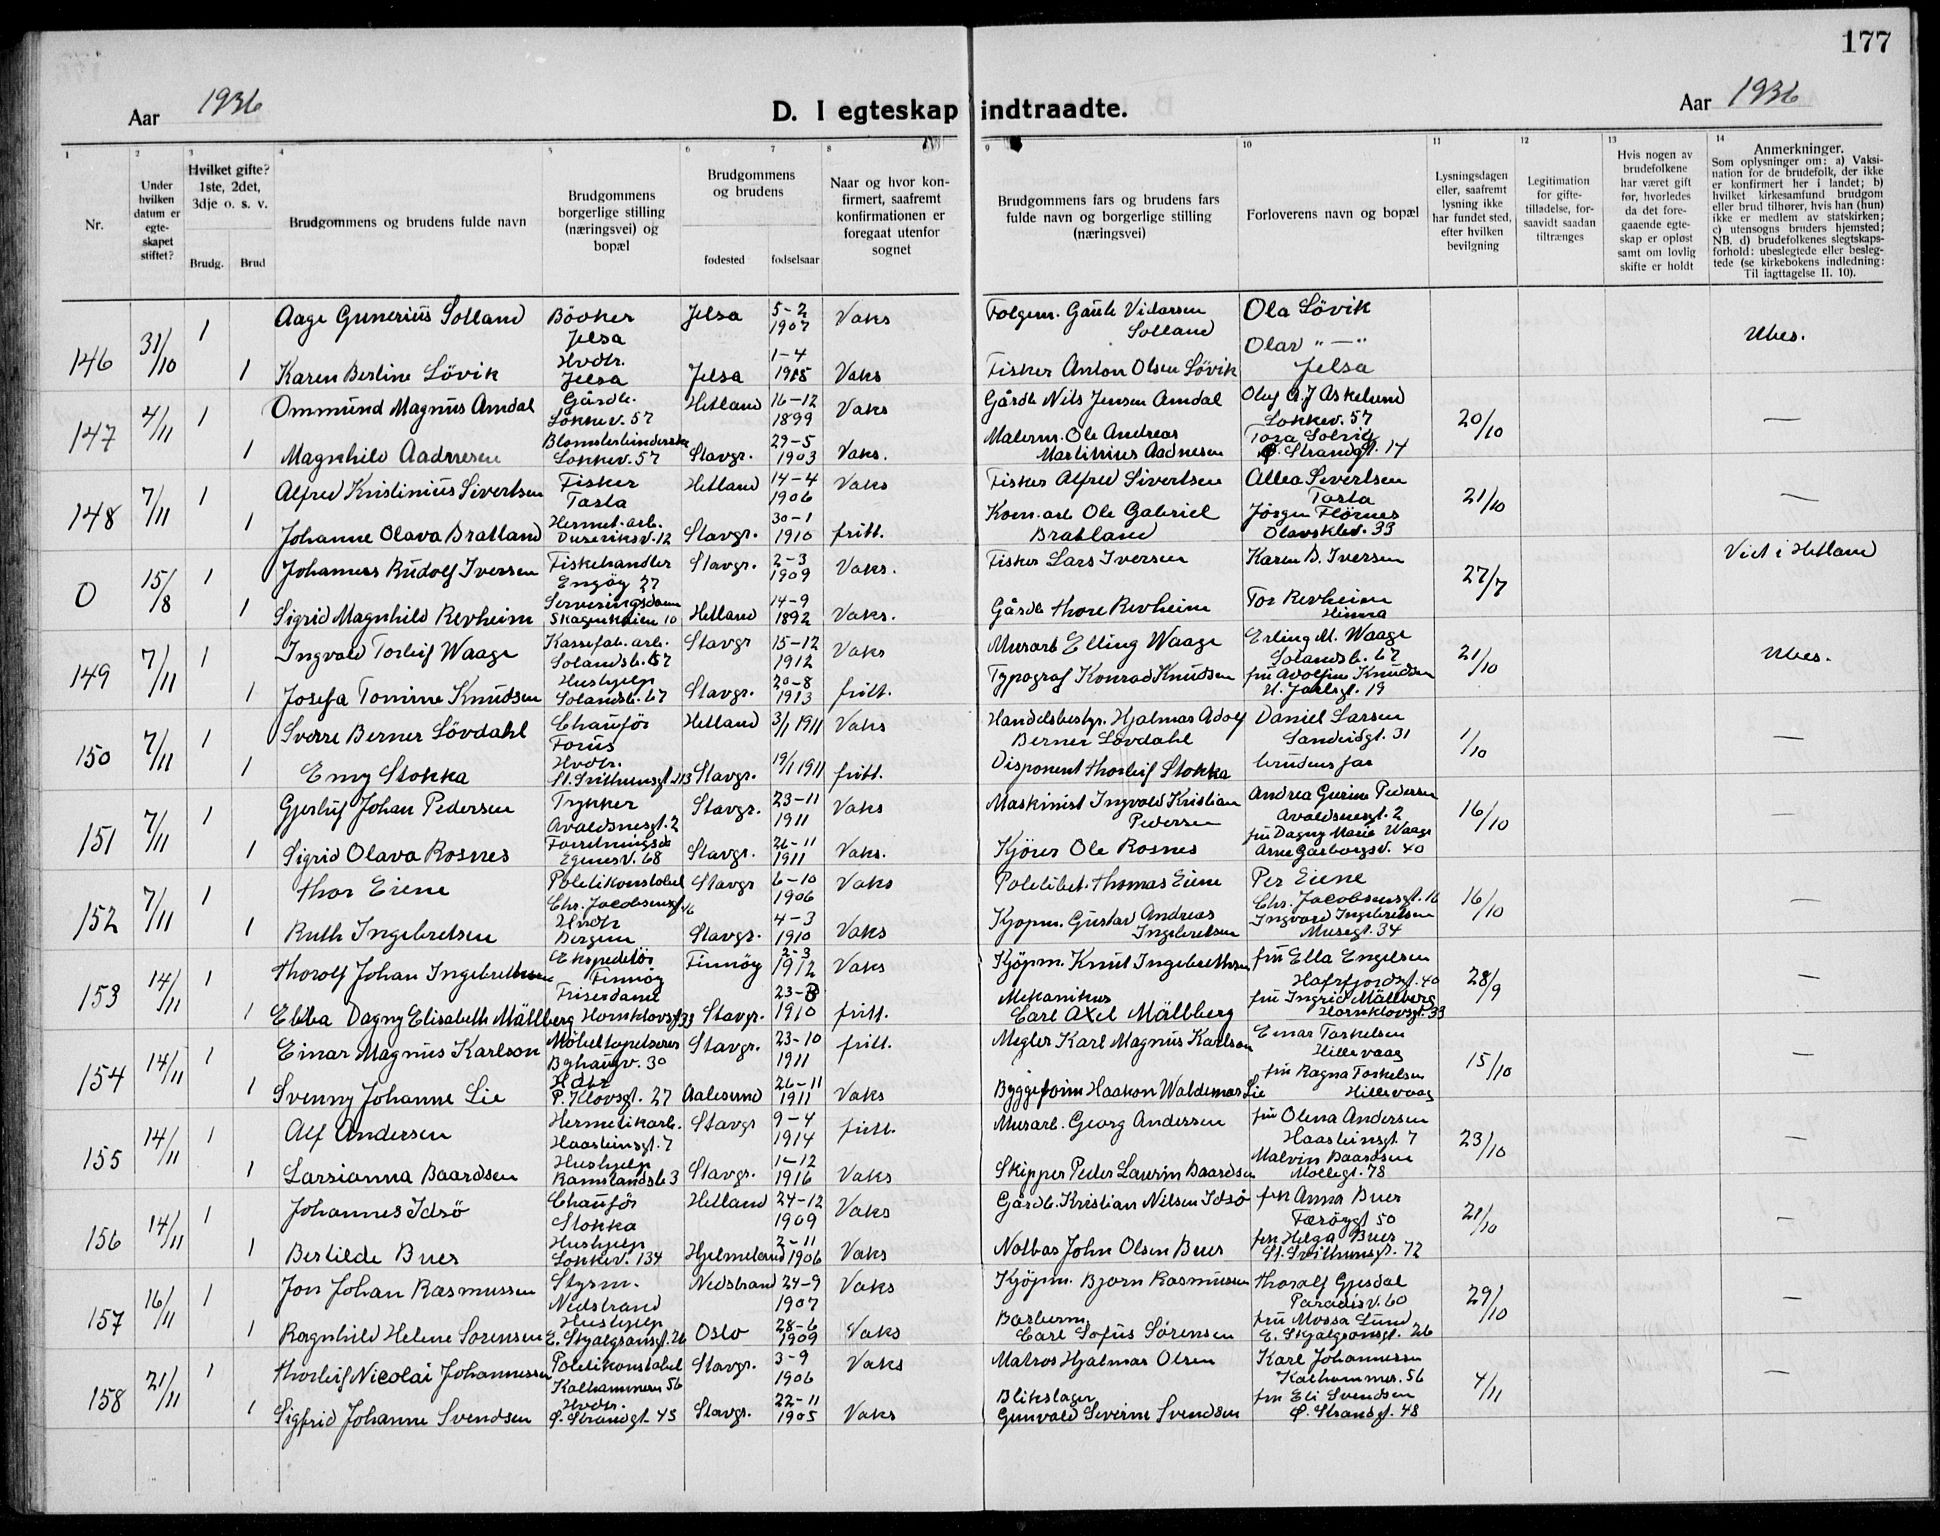 177
Aar 1936
D. I egteskap indtraadte.
Aar 1936
1 2 3 4 5 6 7 8 9 10 11 12 13 14
Nr.
Under hvilken datum er egteskapet stiftet?
Hvilket gifte? 1ste, 2det, 3dje o. s. v.
Brudg. Brud
Brudgommens og brudens fulde navn
Brudgommens borgerlige stilling (næringsvei) og bopæl
Brudgommens og brudens
fødested fødselsaar
Naar og hvor konfirmert, saafremt konfirmationen er foregaat utenfor sognet
Brudgommens fars og brudens fars fulde navn og borgerlige stilling (næringsvei)
Forloverens navn og bopæl
Lysningsdagen eller, saafremt lysning ikke har fundet sted, efter hvilken bevilgning
Legitimation for giftetilladelse, forsaavidt saadan tiltrænges
Hvis nogen av brudefolkene har været gift før, hvorledes da det foregaaende egteskap er opløst samt om lovlig skifte er holdt
Anmerkninger.
Som oplysninger om: a) Vaksination for de brudefolk, der ikke er konfirmert her i landet; b) hvilket kirkesamfund brudgom eller brud tilhører, hvis han (hun) ikke er medlem av statskirken; c) utensogns bruders hjemsted; NB. d) brudefolkenes slegtskapsforhold: ubeslegtede eller beslegtede (se kirkebokens indledning: Til iagttagelse II. 10).
146 31/10 1 Aage Gunerius Solland Bövker Jelsa Jelsa 5-2 1907 Vaks Folgem. Gaute Vidarsen Solland Ola Lövik Ubes.
1 Karen Berline Lövik Hvdtr. Jelsa Jelsa 1-4 1915 Vaks Fisker Anton Olsen Lövik Olav "—" Jelsa
147 4/11 1 Ommund Magnus Amdal Gårdb. Lokkev. 57 Hetland 16-12 1899 Vaks Gårdb Nils Jensen Amdal Oluf A. J Askelund Lokkev. 57 20/10 —
1 Magnhild Aadnesen Blomsterbinderske Lokkev. 57 Stavgr. 29-5 1903 Vaks. Malerm. Ole Andreas Martinius Aadnesen Tora Solvig Ø. Strandgt. 14
148 7/11 1 Alfred Kristinius Sivertsen Fisker Tasta Hetland 14-4 1906 Vaks Fisker Alfred Sivertsen Allea Sivertsen Tasta 21/10 —
1 Johanne Olava Bratland Hermet. arb. Duseriksv. 12 Stavgr. 30-1 1910 fritt. Kom. arb Ole Gabriel Bratland Jörgen Flörnes Olavsklev. 33
0 15/8 1 Johannes Rudolf Iversen Fiskehandler Engöy 27 Stavgr. 2-3 1909 Vaks. Fisker Lars Iversen Karen B. Iversen 27/7 Viet i Hetland
1 Sigrid Magnhild Revheim Serveringsdame Skagenkaien 10 Hetland 14-9 1892 Vaks. Gårdb Thore Revheim Tor Revheim Hinna
149 7/11 1 Ingvald Torleif Waage Kassefab. arb. Solandsb. 67 Stavgr 15-12 1912 Vaks Murarb Elling Waage Erling M. Waage Solandsb. 67 21/10 Ubes.
1 Josefa Tomine Knudsen Hushjelp Solandsb. 67 Stavgr. 20-8 1913 fritt. Typograf Konrad Knudsen fru Adolfine Knudsen H. Jarlsgt. 19
150 7/11 1 Sverre Berner Lövdahl Chauför Forus Hetland 3/1 1911 Vaks Handelsbestyr. Hjalmar Adolf Berner Lövdahl Daniel Larsen Sandeidgt. 31 1/10 —
1 Emy Stokka Hvdtr. St. Svithunsgt. Stavgr. 19/1 1911 fritt. Disponent Thorleif Stokka brudens far
151 7/11 1 Gjerluf Johan Pedersen Trykker Avaldsnesgt. 2 Stavgr. 23-11 1911 Vaks Maskinist Ingvald Kristian Pedersen Andrea Gurine Pedersen Avaldsnesgt. 2 16/10 —
1 Sigrid Olava Rosnes Forretningsda Egenesv. 68 Stavgr. 26-11 1911 Vaks. Kjörer Ole Rosnes fru Dagny Marie Waage Arne Garborgsv. 40
152 7/11 1 Thor Eiene Politikonstabel Chr. Jacobsensgt 16 Stavgr 6-10 1906 Vaks Politibet. Thomas Eiene Per Eiene Chr. Jacobsensgt. 16 16/10 —
1 Ruth Ingebretsen Hvdtr Bergen Stavgr. 4-3 1910 Vaks Kjøpm. Gustav Andreas Ingebretsen Ingvard Ingebretsen Musegt. 34
153 14/11 1 Thorolf Johan Ingebrethsen Ekspeditör Finnöy Finnöy 2-3 1912 Vaks Kjöpm. Knut Ingebrethsen fru Ella Engelsen Hafrsfjordgt. 40 28/9 —
1 Ebba Dagny Elisabeth Mällberg Friserdame Hornklovsgt 33 Stavgr. 23-8 1910 fritt. Mekaniker Carl Axel Mällberg fru Ingrid Mällberg Hornklovsgt. 33
154 14/11 1 Einar Magnus Karlson Möbeltapetserer Byhaugv. 30 Stavgr. 23-10 1911 fritt. Megler Karl Magnus Karlson Einar Torkelsen Hillevaag 15/10 —
1 Svenny Johanne Lie Hdtr P. Klovsgt. 27 Aalesund 26-11 1911 Vaks Byggeform Haakon Waldemar Lie fru Ragna Torkelsen Hillevaag
155 14/11 1 Alf Andersen Hermetikarb. Haasteinsgt. 7 Stavgr 9-4 1914 fritt. Murarb. Georg Andersen fru Olena Andersen Haasteinsgt. 7 23/10 —
1 Larsianna Baardsen Hushjelp Ramslandsb 3 Stavgr. 1-12 1916 Vaks Skipper Peder Laurin Baardsen Malvin Baardsen Mollegt. 78
156 14/11 1 Johannes Idsö Chauför Stokka Hetland 24-12 1909 Vaks Gårdb. Kristian Nilsen Idsö frk Anna Buer Færöygt 50 21/10 —
1 Bertilde Buer Hushjelp Lokkev. 134 Hjelmeland 2-11 1906 Vaks Notbas John Olsen Buer frk Helga Buer St. Svithunsgt. 72
157 16/11 1 Jon Johan Rasmussen Styrm. Nedstrand Nedstrand 24-9 1907 Vaks Kjöpm. Bjorn Rasmussen Thoralf Gjesdal Paradisv. 60 29/10 —
1 Ragnhild Helene Sorensen Hushjelp E. Skjalgsonsgt. 26 Oslo 28-6 1909 Vaks Barberm. Carl Sofus Sörensen fru Mossa Lund E. Skjalgsonsgt. 26
158 21/11 1 Thorleif Nicolai Johannessen Politikonstabel Kalhammeren 56 Stavgr. 3-9 1906 Vaks Matros Hjalmar Olsen Karl Johannessen Kalhammer. 56 4/11 —
1 Sigfrid Johanne Svendsen Hvdtr. Ø. Strandgt. 48 Stavgr. 22-11 1905 Vaks Blikslager Gunvald Severin Svendsen fru Eli Svendsen Ø. Strandgt. 48